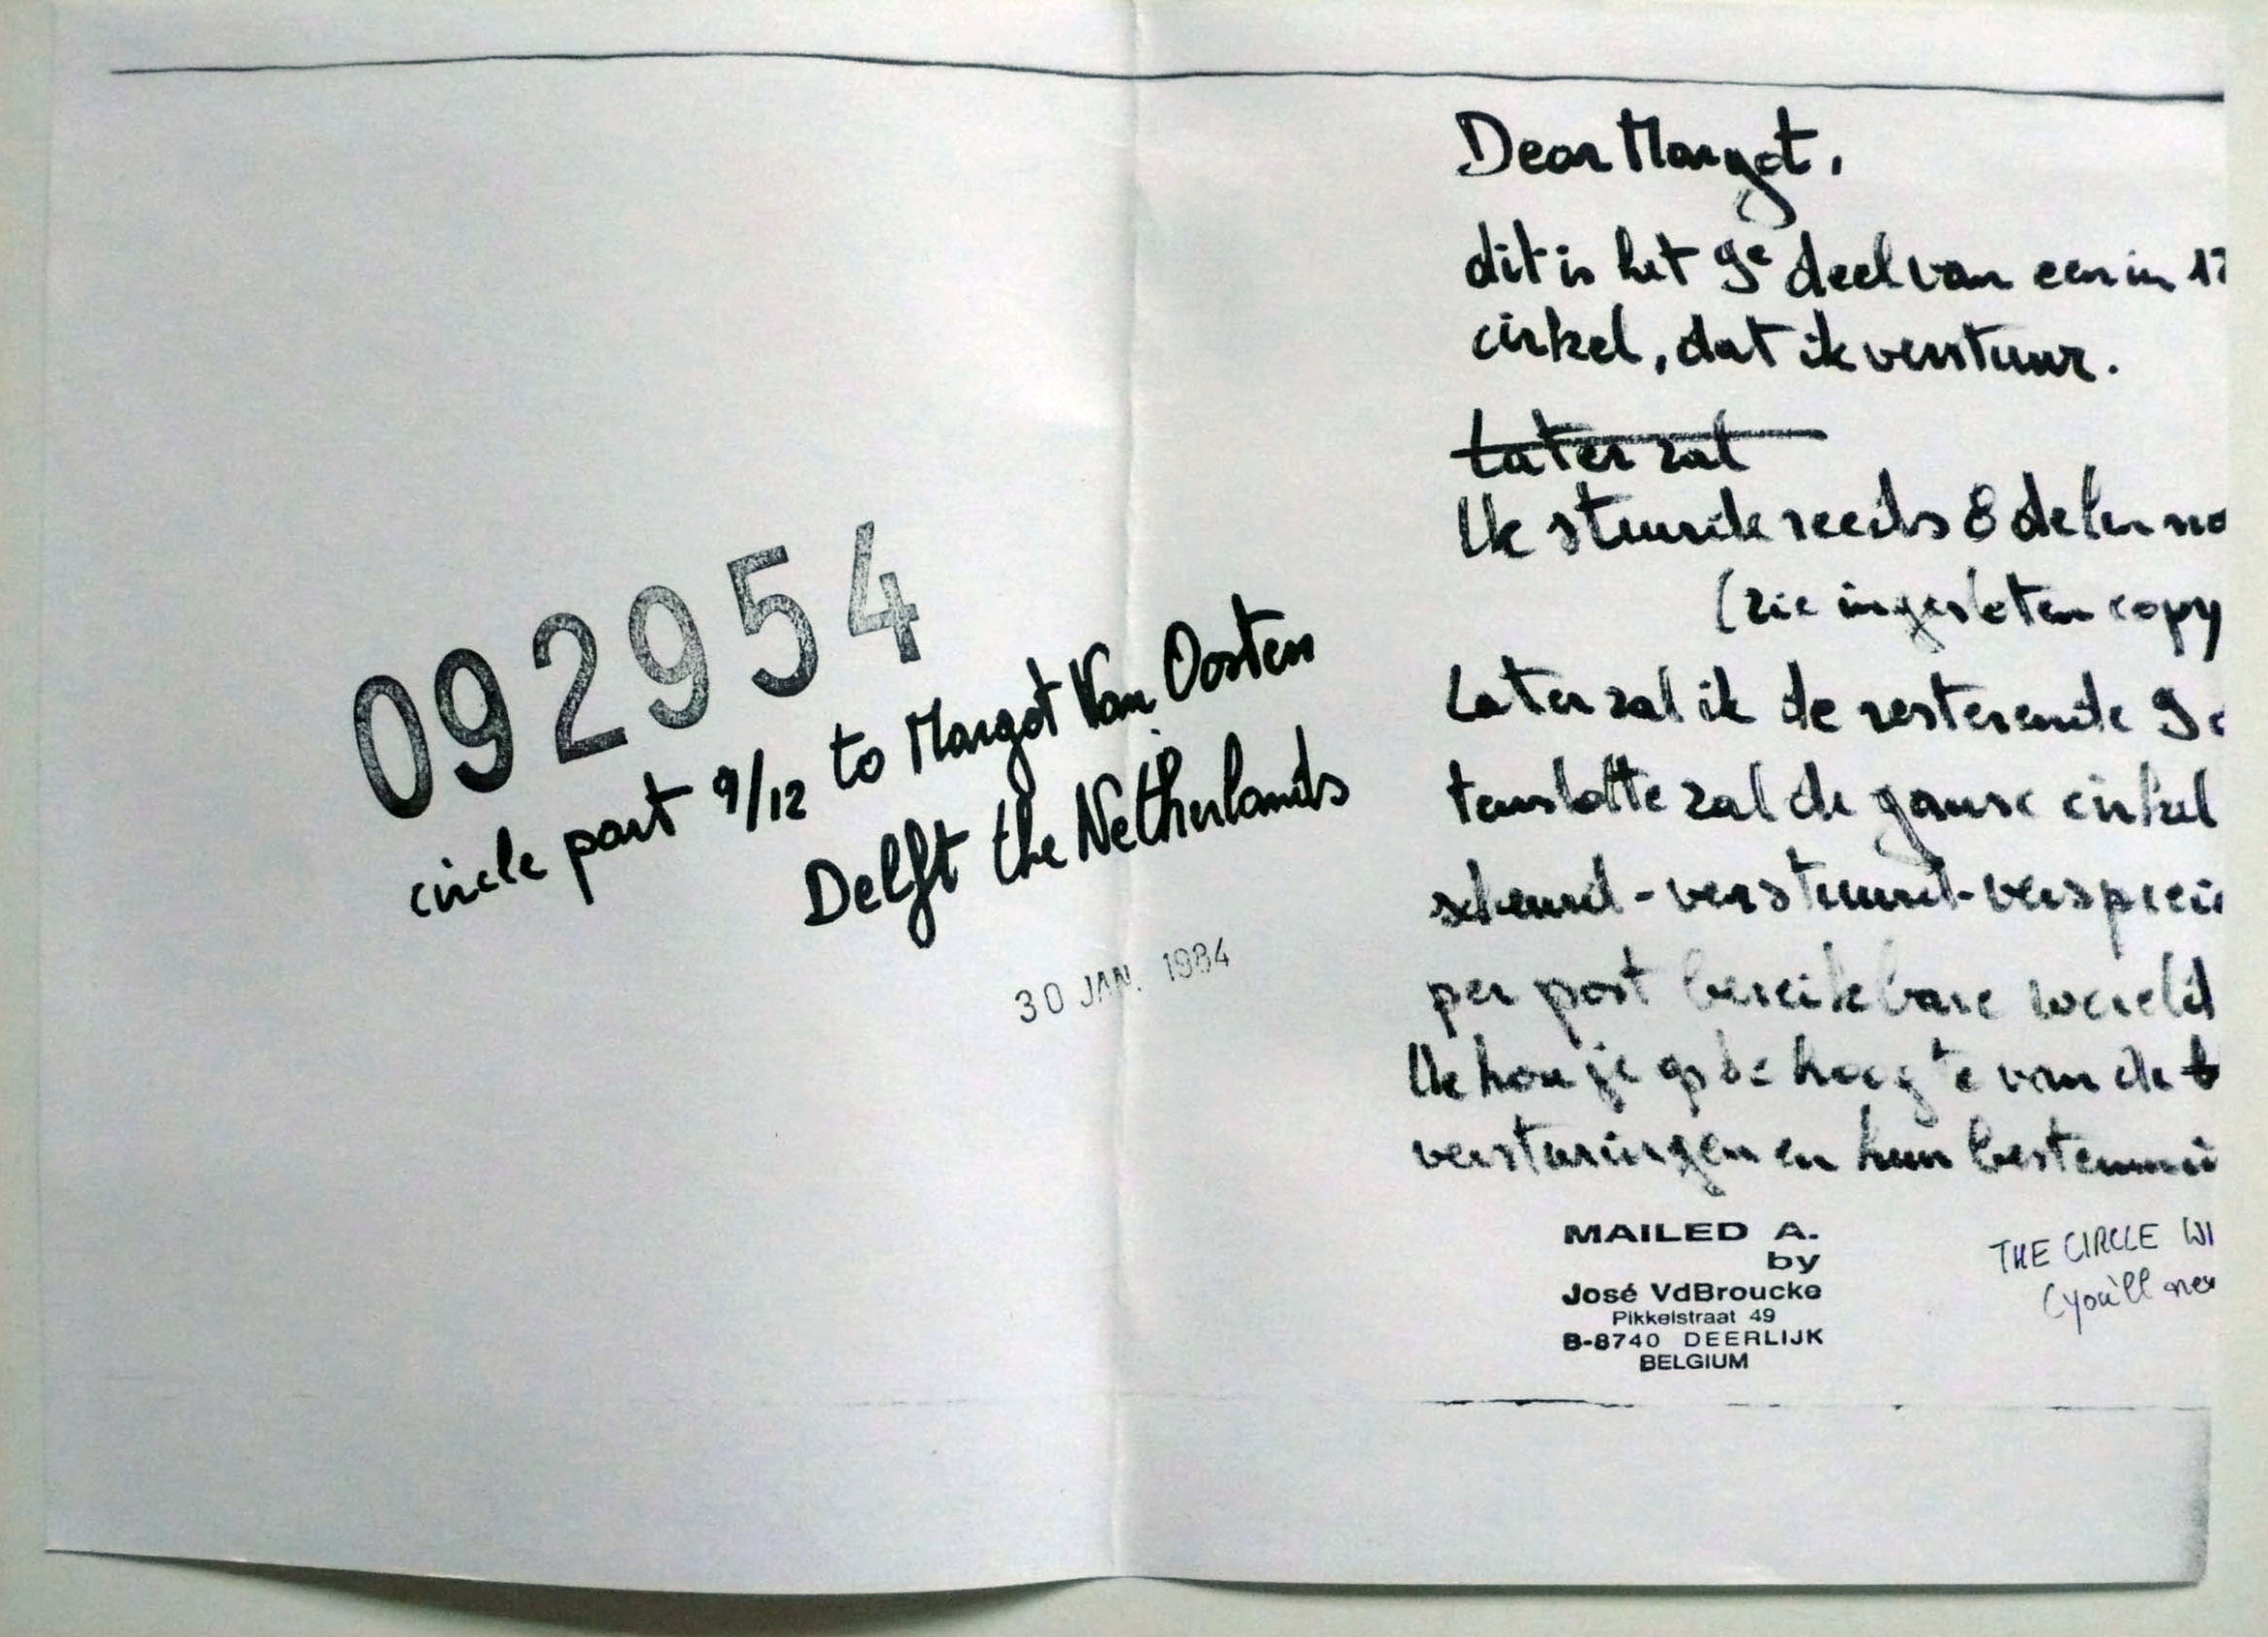 092954
circle part 9/12 to Margot Van Oosten
Delft the Netherlands
30 JAN. 1984
Dear Margot,
dit is het 9e deel van een in 12
cirkel, dat ik verstuur.
Later zal
Ik stuurde reeds 8 delen na
(zie ingesloten copy
Later zal ik de resterende 9
tenslotte zal de ganse cirkel
scheurd - verstuurd - verspreid
per post bereikbare wereld
Ik hou je op de hoogte van de
versturingen en hun bestemmi
MAILED A.
by
José VdBroucke
Pikkelstraat 49
B-8740 DEERLIJK
BELGIUM
THE CIRCLE WI
(you'll nev